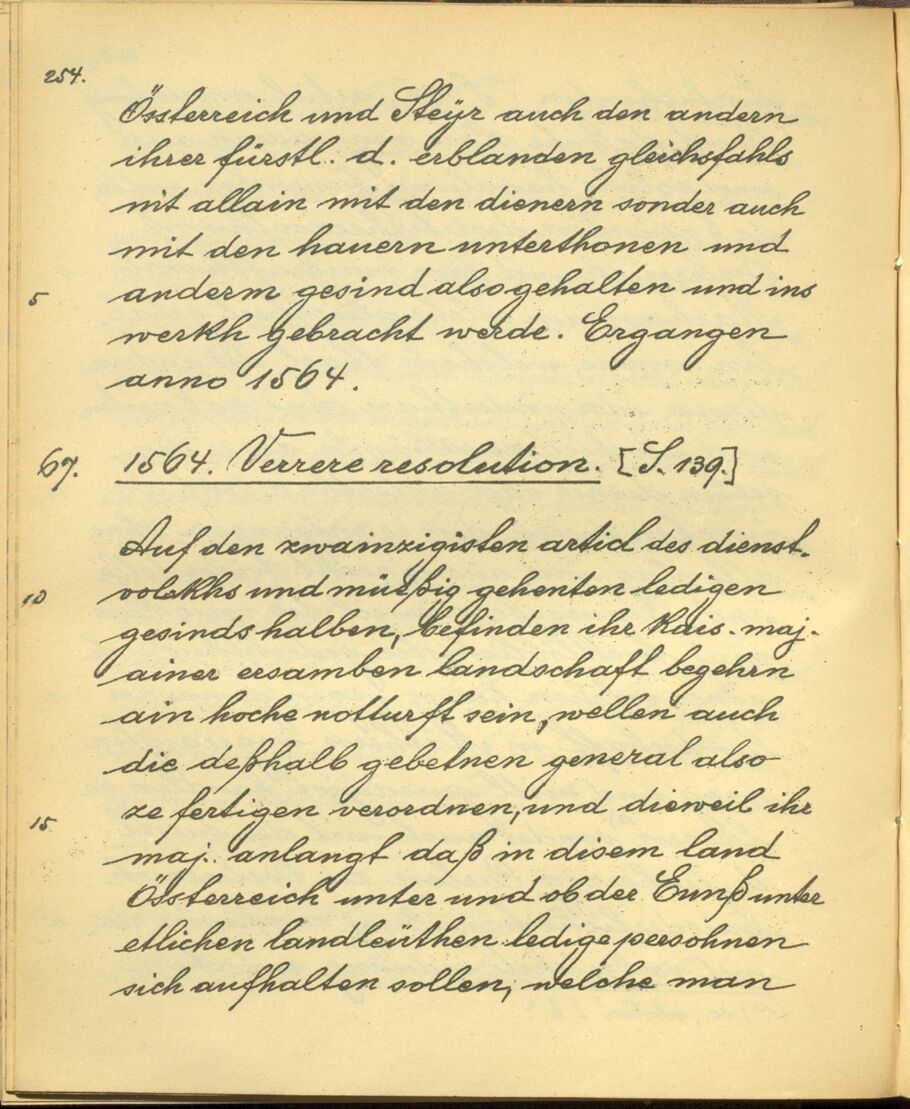 254.
Össterreich und Steÿr auch den andern
ihrer fürstl. d. erblanden gleichsfahls
nit allain mit den dienern sonder auch
mit den hauern unterthonen und
5 anderm gesind also gehalten und ins
werkh gebracht werde. Ergangen
anno 1564.
67. 1564. Verrere resolution. [S. 139.]
Auf den zwainzigisten articl des dienst-
10 volckhs und müeßig gehenten ledigen
gesinds halben, befinden ihr kais. maj.
ainer ersamben landschaft begehrn
ain hoche notturft sein, wellen auch
die deßhalb gebetnen general also
15 ze fertigen verordnen, und dieweil ihr
maj. anlangt daß in disem land
Össterreich unter und ob der Ennß unter
etlichen landleüthen ledige persohnen
sich aufhalten sollen, welche man